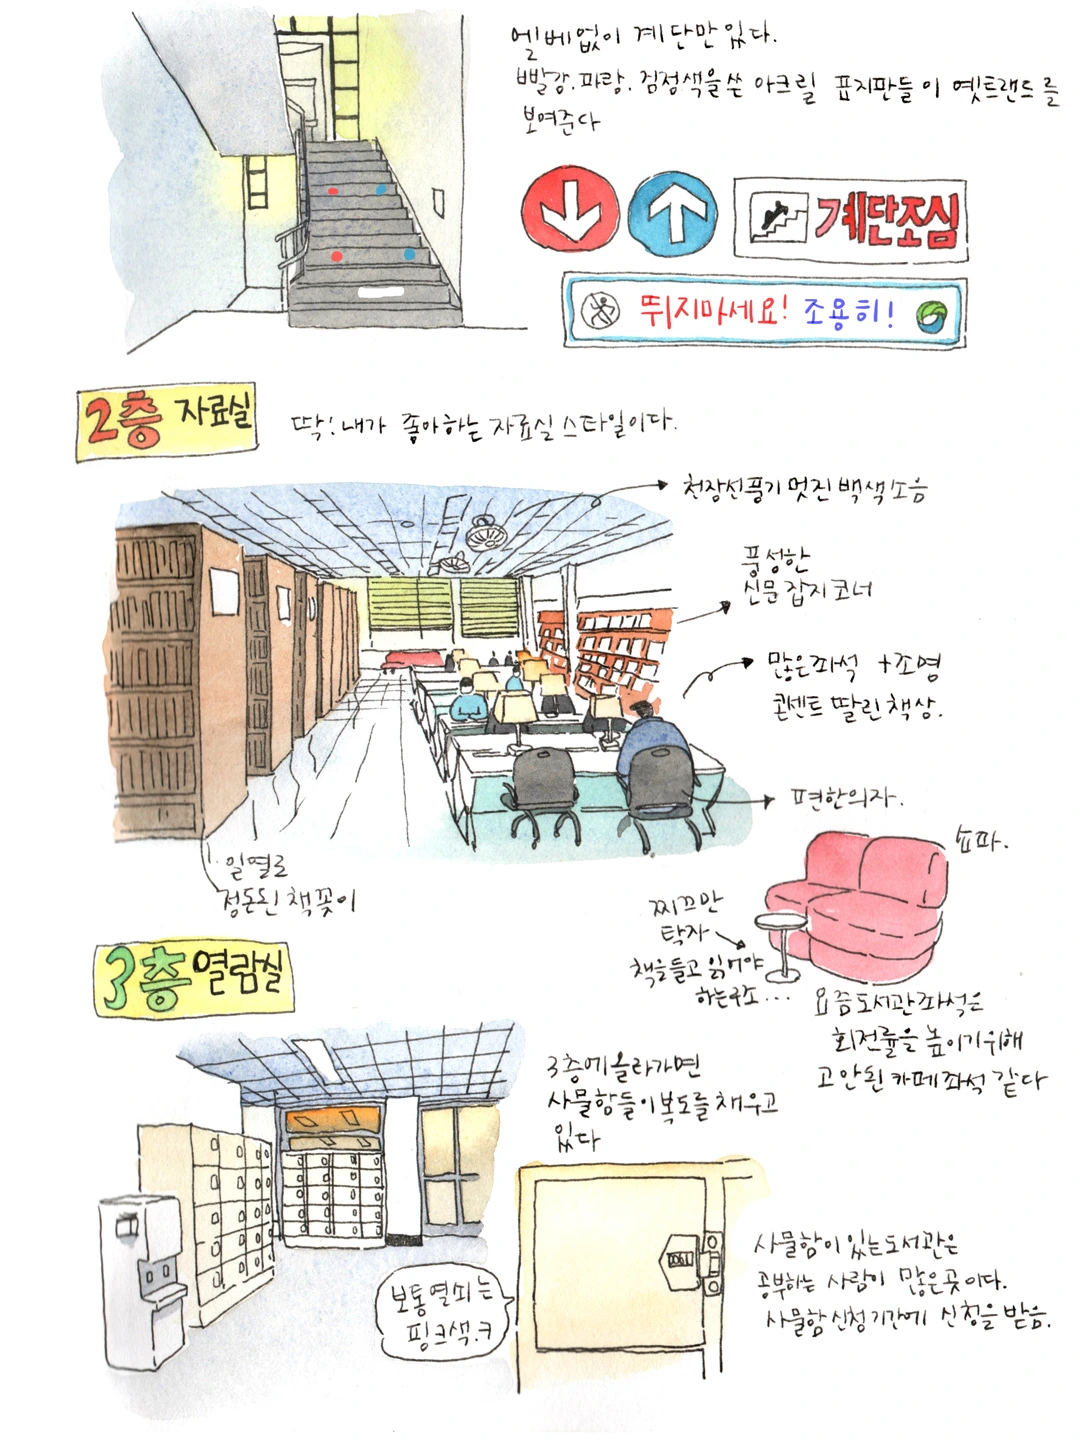 엘베없이 계단만 있다.
빨강.파랑.검정색을 쓴 아크릴 표지판들이 옛트랜드를
보여준다
계단조심
뛰지마세요! 조용히!
2층 자료실
딱! 내가 좋아하는 자료실 스타일이다.
천장선풍기 멋진 백색소음
풍성한
신문 잡지 코너
많은좌석 +조명
콘센트 딸린 책상.
편한의자.
쇼파.
일열로
정돈된 책꽂이
찌끄만
탁자
책을들고 읽어야
하는구조...
요즘도서관좌석은
회전률을 높이기위해
고안된 카페좌석 같다
3층 열람실
3층에올라가면
사물함들이복도를채우고
있다
보통열쇠는
핑크색.ㅋ
사물함이 있는도서관은
공부하는 사람이 많은곳이다.
사물함신청기간에 신청을 받음.